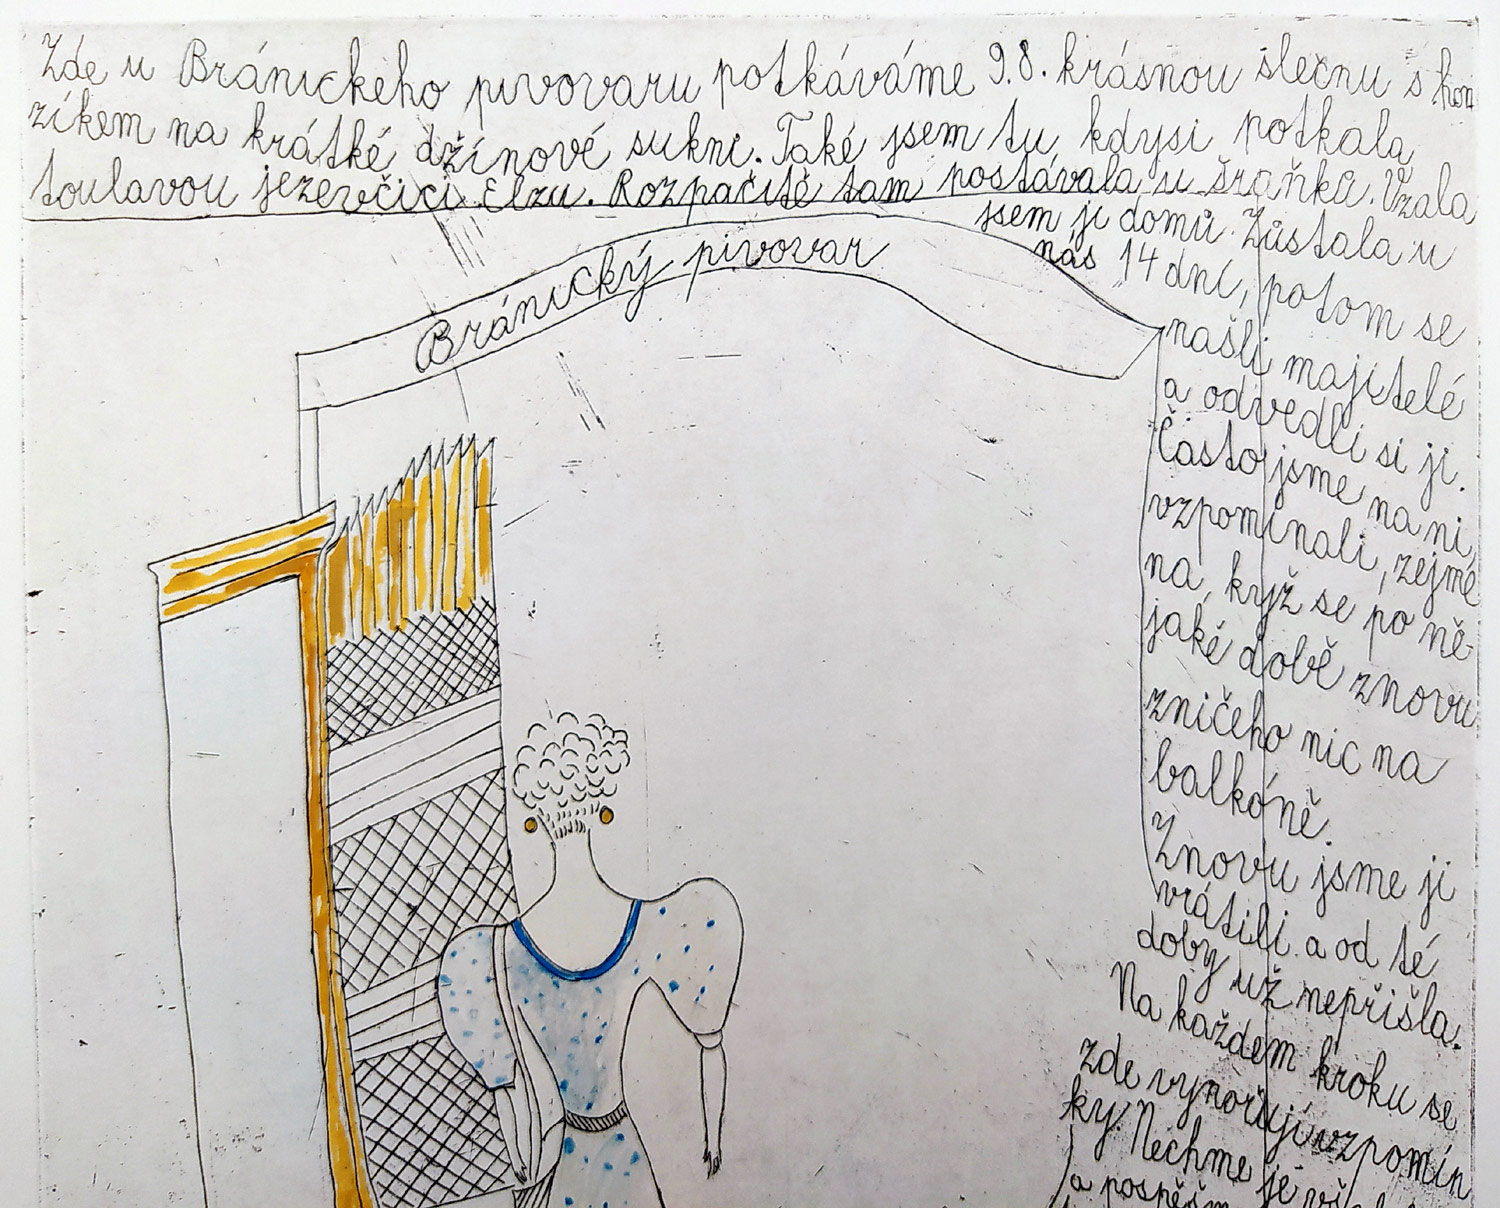 Zde u Bránického pivovaru potkáváme 9.8. krásnou slečnu s hon
zíkem na krátké džínové sukni. Také jsem tu kdysi potkala
toulavou jezevčici Elzu. Rozpačitě tam postávala u šraňků. Vzala
jsem ji domů. Zůstala u
nás 14 dní, potom se
našli majitelé
a odvedli si ji.
Často jsme na ni
vzpomínali, zejmé
na, kyž se po ně-
jaké době znovu
zničeho nic na
balkóně.
Znovu jsme ji
vrátili a od té
doby už nepřišla.
Na každem kroku se
zde vynořují vzpomín
ky. Nechme je
a pospěšm
Bránický pivovar